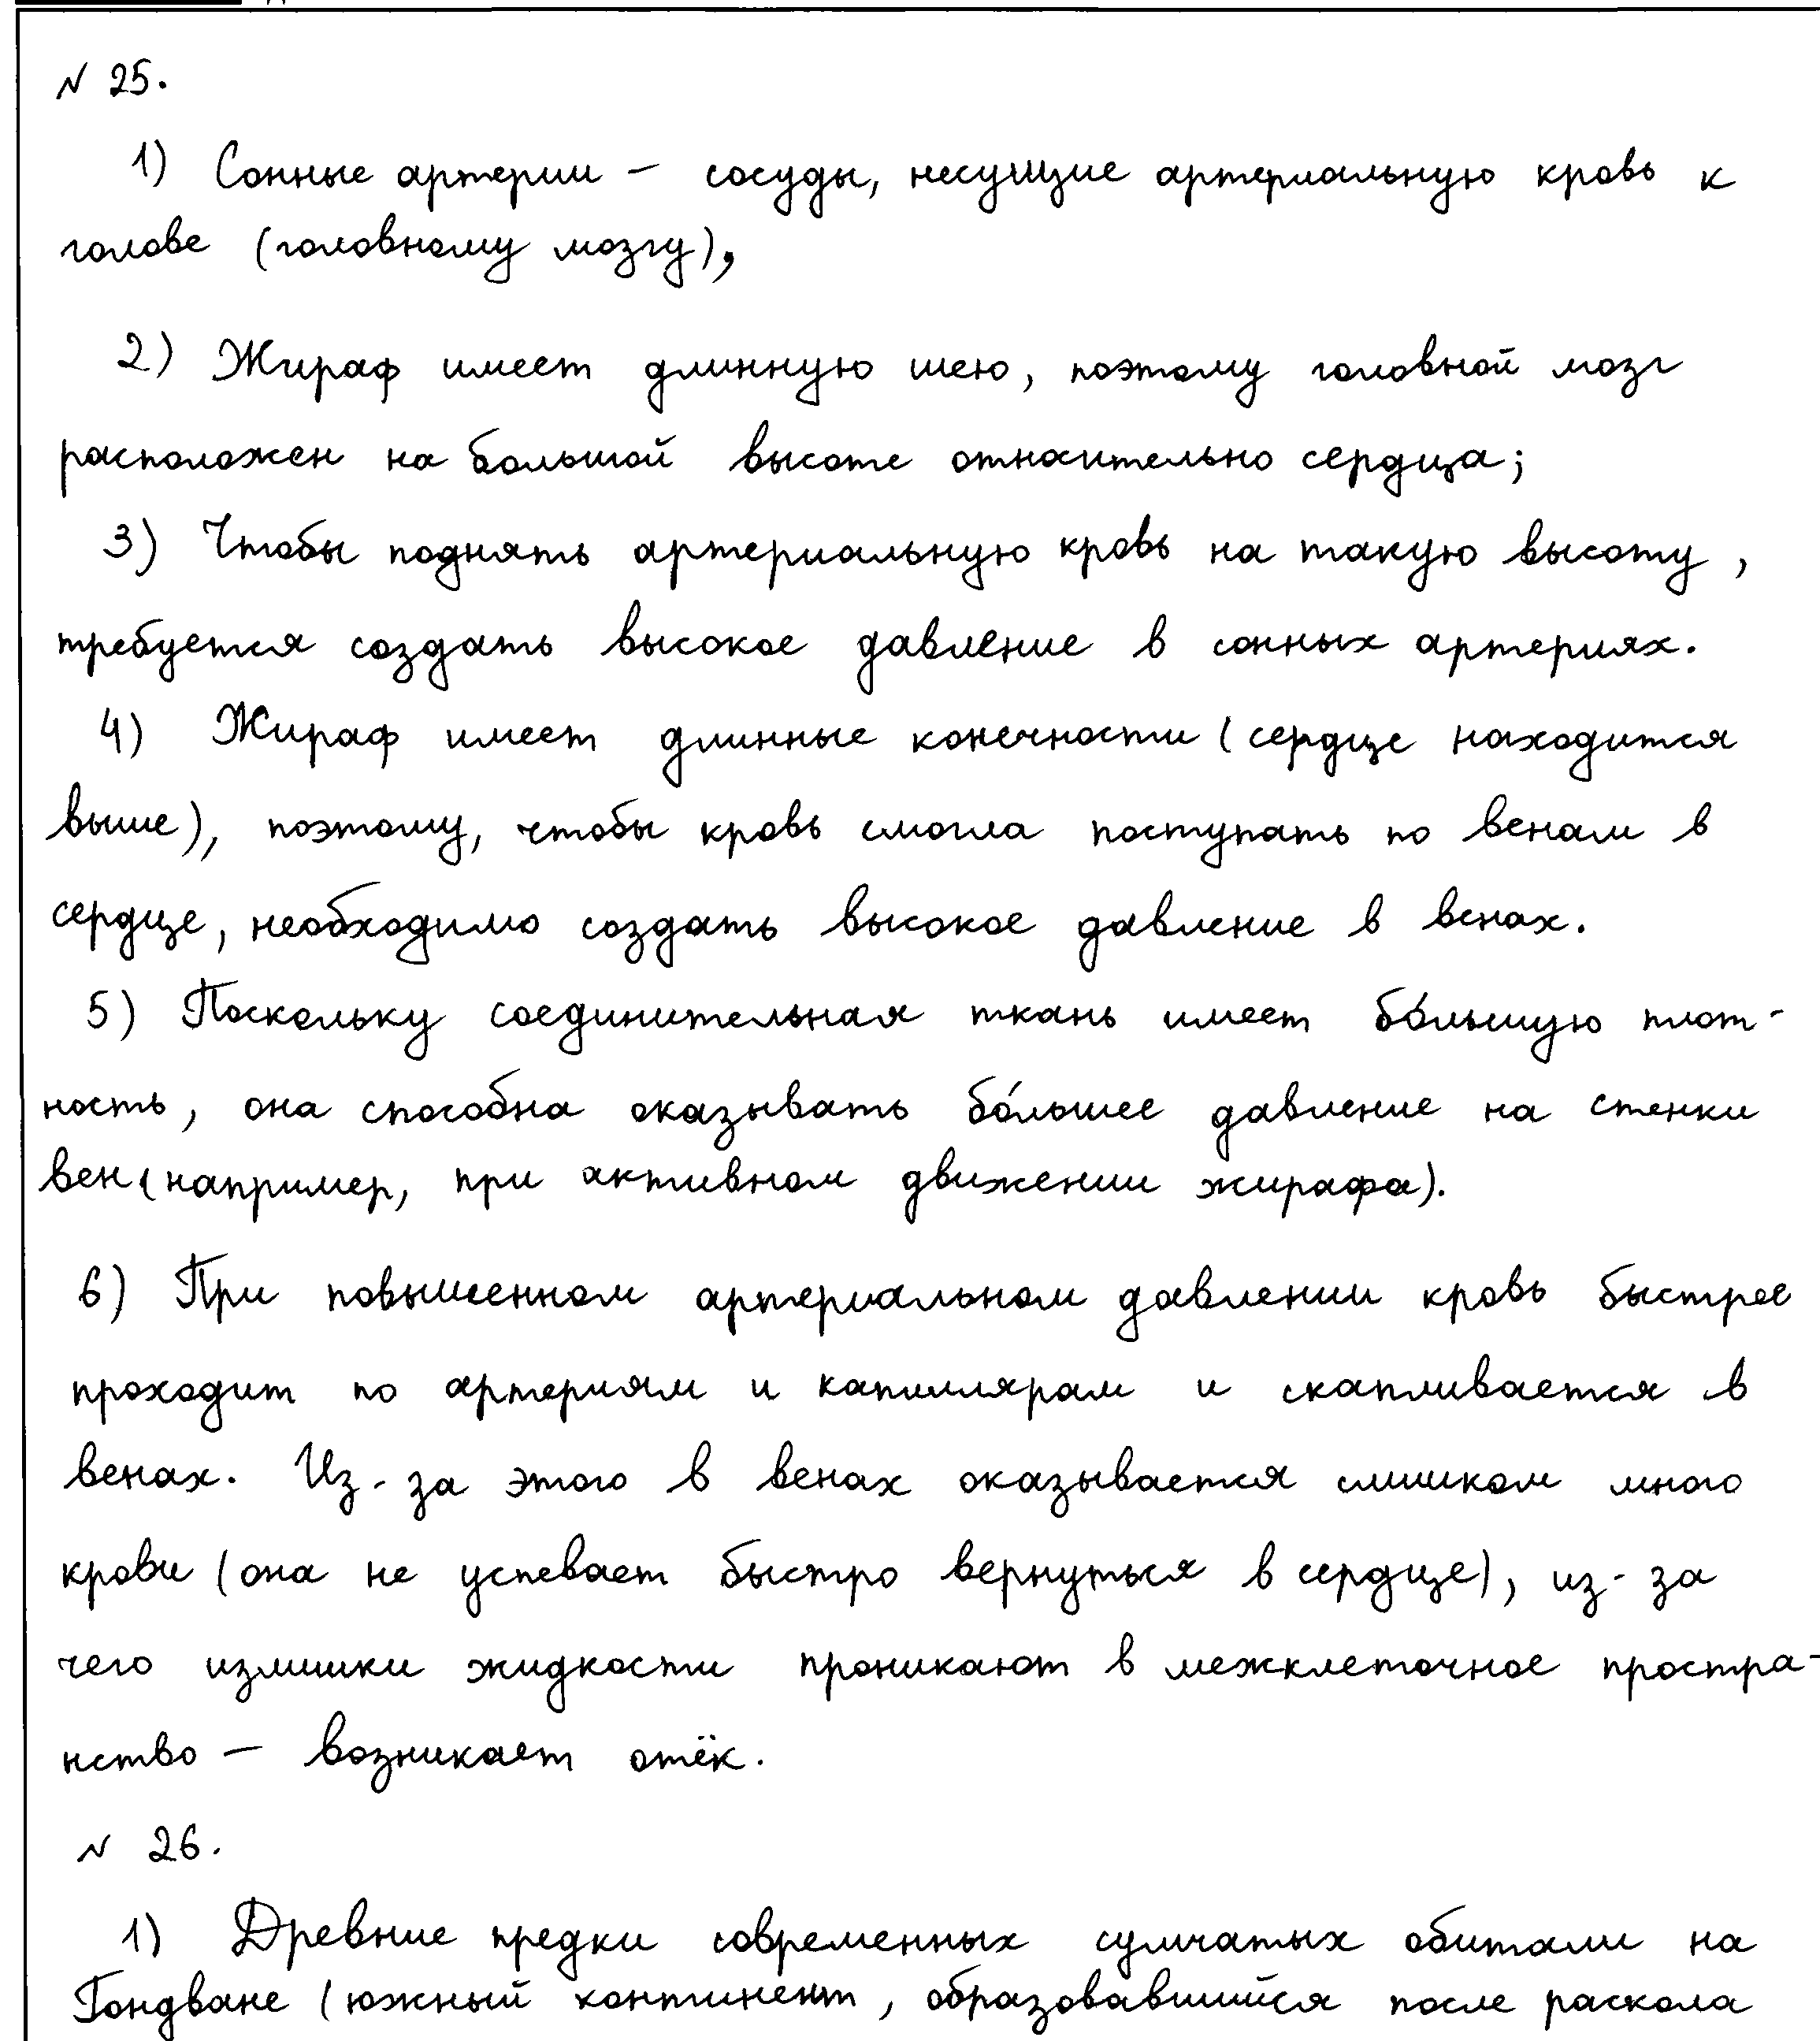 N 25.
1) Сонные артерии – сосуды, несущие артериальную кровь к
голове (головному мозгу),
2) Жираф имеет длинную шею, поэтому головной мозг
расположен на большой высоте относительно сердца;
3) Чтобы поднять артериальную кровь на такую высоту,
требуется создать высокое давление в сонных артериях.
4) Жираф имеет длинные конечности (сердце находится
выше), поэтому, чтобы кровь смогла поступать по венам в
сердце, необходимо создать высокое давление в венах.
5) Поскольку соединительная ткань имеет бо́льшую плот-
ность, она способна оказывать бо́льшее давление на стенки
вен (например, при активном движении жирафа).
6) При повышенном артериальном давлении кровь быстрее
проходит по артериям и капиллярам и скапливается в
венах. Из-за этого в венах оказывается слишком много
крови (она не успевает быстро вернуться в сердце), из-за
чего излишки жидкости проникают в межклеточное простра-
нство – возникает отёк.
N 26.
1) Древние предки современных сумчатых обитали на
Гондване (южный континент, образовавшийся после раскола